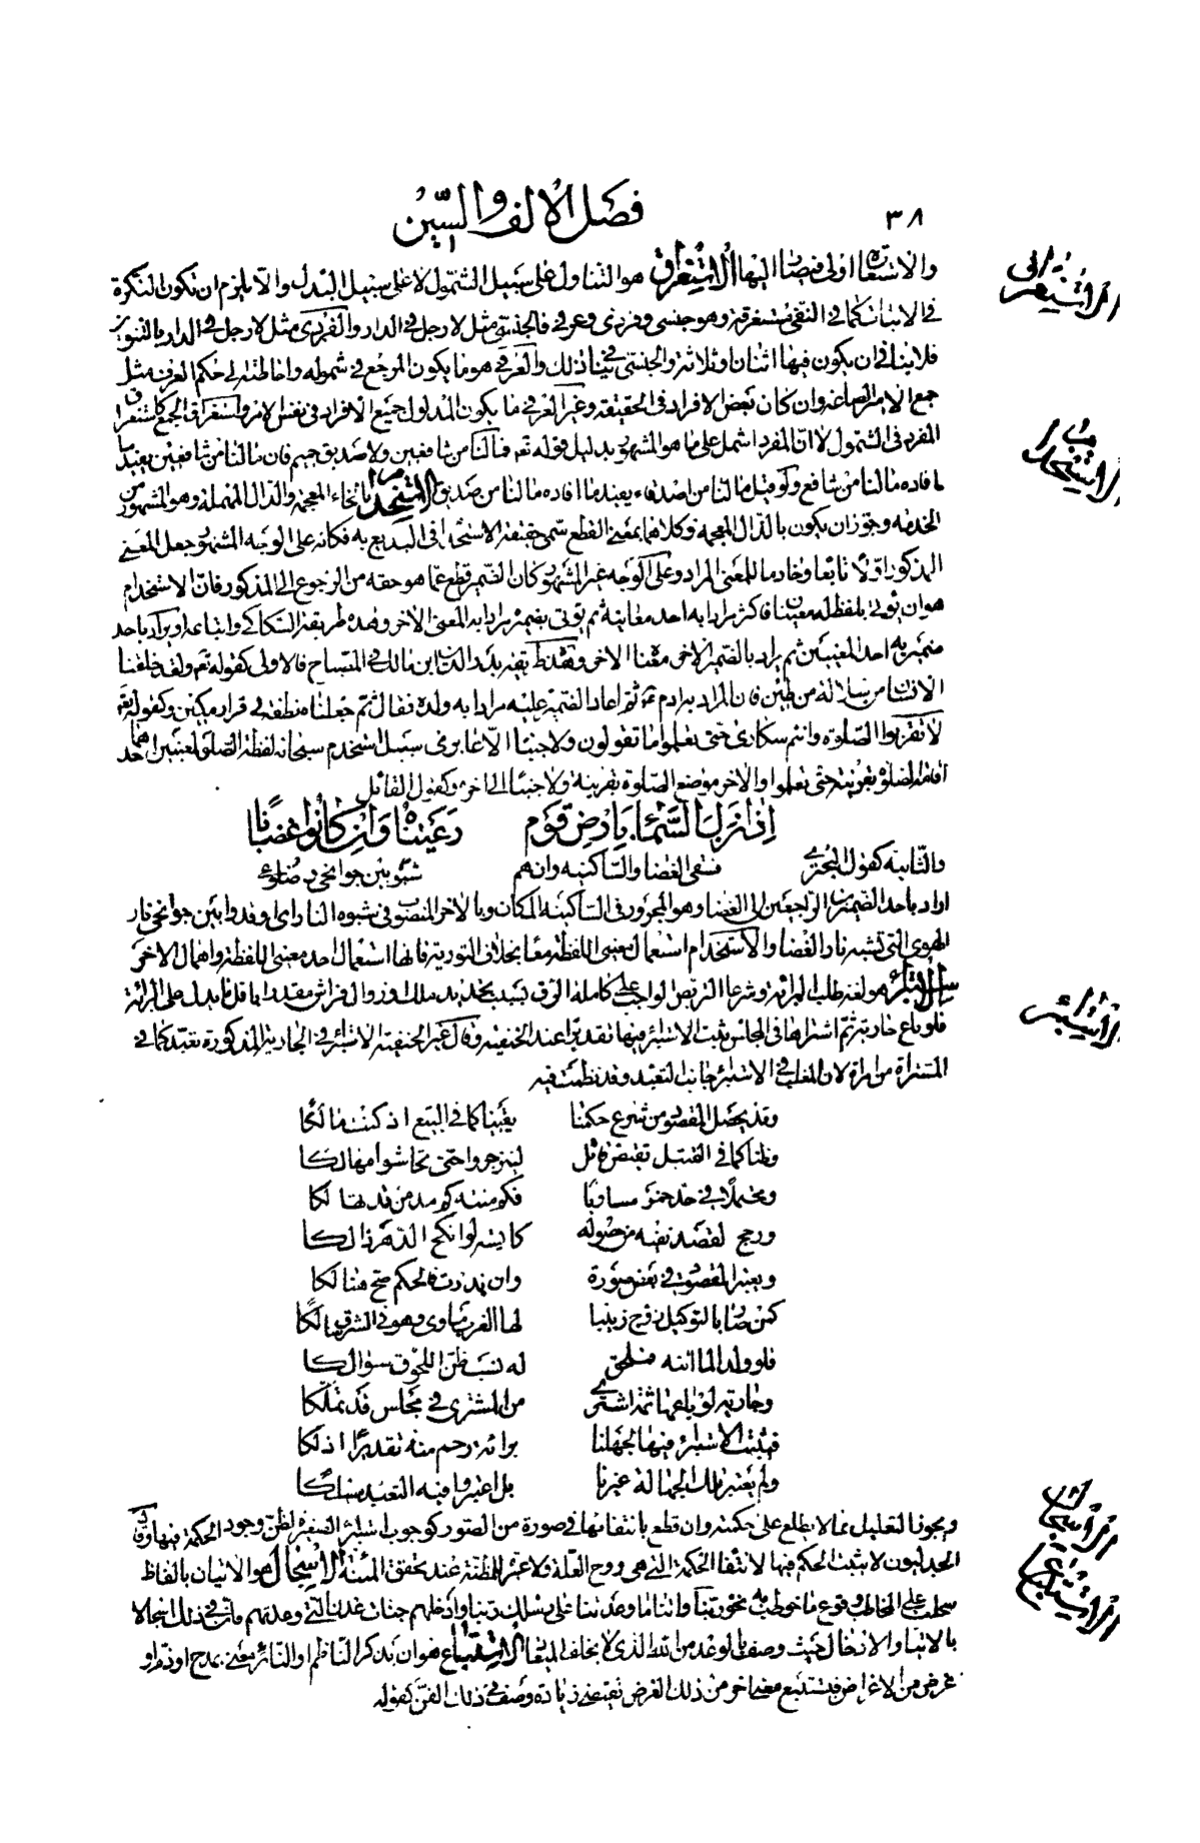 ٣٨
فصل الالف والسين
والاستعارة اولى فيصار اليها الاستغراق هو التناول على سبيل الشمول لا على سبيل البدل والا يلزم ان تكون النكرة
في الاثبات كما في النفي مستغرقة وهو جنسي وفردي وعرفي فالجنسي مثل لا رجل في الدار والفردي مثل لا رجل في الدار بالتنوين
فلا ينافي ان يكون فيها اثنان وثلاثة والجنسي ينافي ذلك والعرفي هو ما يكون المرجع في شموله واحاطته الى حكم العرف مثل
جمع الامير الصاغة وان كان بعض الافراد في الحقيقة وغير العرفي ما يكون المدلول جميع الافراد في نفس الامر واستغراق الجمع كاستغراق
المفرد في الشمول لا ان المفرد اشمل على ما هو المشهور بدليل قوله تعه فما لنا من شافعين ولا صديق حميم فان ما لنا من شافعين يفيد ما
افاده ما لنا من شافع ولو قيل ما لنا من اصدقاء يفيد ما افاده ما لنا من صديق الاستخدام بالخاء المعجمة والدال المهملة وهو المشهور من
الخدمة وجوز ان يكون بالذال المعجمة وكلاهما بمعنى القطع سمي حقيقة الاستخدام في البديع به فكانه على الوجه المشهور جعل المعنى
المذكور اولا تابعا وخادما للمعنى المراد وعلى الوجه غير المشهور كان الضمير قطع عما هو حقه من الرجوع الى المذكور فان الاستخدام
هو ان يؤتى بلفظ له معنيان فاكثر مرادا به احد معانيه ثم يؤتى بضمير مرادا به المعنى الاخر وهذه طريقة السكاكي واتباعه او يراد باحد
ضميريه احد المعنيين ثم يراد بالضمير الاخر معناه الاخر وهذه طريقة بدر الدين ابن مالك في المصباح فالاولى كقوله تعه ولقد خلقنا
الانسان من سلالة من طين فان المراد به ادم ثم اعاد الضمير عليه مرادا به ولده فقال ثم جعلناه نطفة في قرار مكين وكقوله تعه
لا تقربوا الصلوة وانتم سكارى حتى تعلموا ما تقولون ولا جنبا الا عابري سبيل استخدم سبحانه لفظة الصلوة لمعنيين احدهما
اقامة الصلوة بقرينة حتى تعلموا والاخر موضع الصلوة بقرينة ولا جنبا الى اخره وكقول القائل
اذا نزل السماء بارض قوم رعيناه وان كانوا غضابا
والثانية كقول البحتري فسقى الغضا والساكنيه وان هم شبوه بين جوانحي وضلوعي
اراد باحد الضميرين الراجعين الى الغضا وهو المجرور في الساكنيه المكان وبالاخر المنصوب في شبوه النار اي اوقدوا بين جوانحي نار
الهوى التي تشبه نار الغضا والاستخدام استعمال معنيي اللفظة معا بخلاف التورية فانها استعمال احد معنيي اللفظة واهمال الاخر
الاستبراء هو لغة طلب البراءة وشرعا التربص الواجب على كاملة الرق بسبب تجديد ملك او زوال فراش مقدرا باقل ما يدل على البراءة
فلو باع جارية ثم اشتراها في المجلس ثبت الاستبراء فيها تقديرا عند الحنفية وقال غير الحنفية الاستبراء في الجارية المذكورة تعبد كما في
المشتراة من امراة لان المغلب في الاستبراء جانب التعبد وقد نظمت فيه
وقد يحصل المقصود من شرع حكمنا يقينا كما في البيع اذ كنت مالكا
وظنا كما في القتل تقتص قاتل لينزجروا حتى تحاشوا مهالكا
ومحتملا في حد خمر مساويا
ورجح لقصد نفيه من حصوله كايسة لو انكح الدهر ذالكا
ويعتبر المقصود في بعض صورة وان ندرت فالحكم صح هنالكا
كمن صار بالتوكيل زوج زينبا لها الغرب ماوى وهو في الشرق هالكا
فلو ولد لها اتته فملحق
وجارية لو باعها ثم اشترى من المشتري في مجلس قد تملكا
فيثبت الاستبراء فيها لجهلنا براءة رحم منه تقديرا اذ لكا
ولم يعتبر تلك الجهالة غيرنا بل اعتبروا فيه التعبد مسلكا
ويجوز التعليل بما لا يطلع على حكمته وان قطع بانتفائها في صورة من الصور كوجوب استبراء الصغيرة لظن وجود الحكمة فيها وقال
الجدليون لا يثبت الحكم فيها لانتفاء الحكمة التي هي روح العلة ولا عبرة للمظنة عند تحقق المئنة الاسجال هو الاتيان بالفاظ
سجلت على المخاطب وقوع ما خوطب به نحو ربنا واتنا ما وعدتنا على رسلك ربنا وادخلهم جنات عدن التي وعدتهم فان في ذلك اسجالا
بالايتاء والادخال حيث وصفا بالوعد من الله الذي لا يخلف الميعاد الاستتباع هو ان يذكر الناظم او الناثر معنى بمدح او ذم او
غرض من الاغراض فيستتبع معنى اخر من ذلك الغرض تقتضي زيادة وصف في ذلك الفن كقوله
الاستغراق
الاستخدام
الاستبراء
الاسجال
الاستتباع